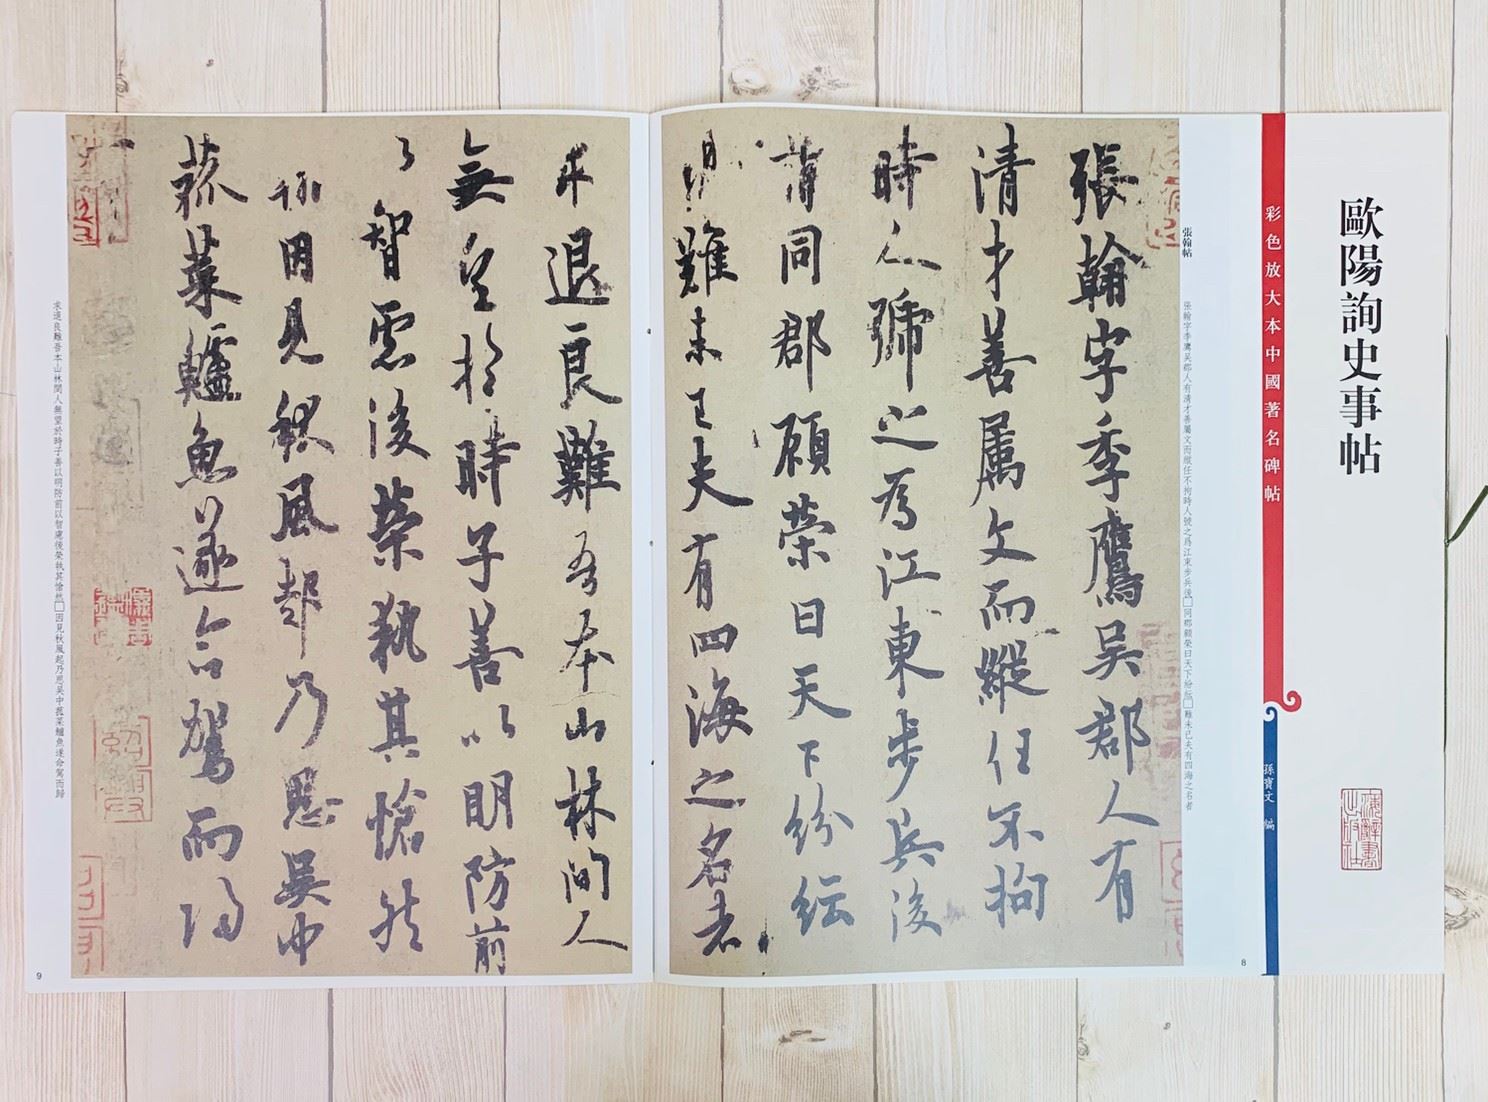 歐陽詢史事帖
彩色放大本中國著名碑帖
孫寶文 編
上海辭書出版社
張翰帖
張翰字季鷹吴郡人有清才善屬文而縱任不拘時人號之爲江東步兵後□同郡顧榮曰天下紛紜□難未已夫有四海之名者
張翰字季鷹吴郡人有
清才善屬文而縱任不拘
時人號之為江東步兵後
薄同郡顧榮曰天下紛紜
難未已夫有四海之名者
8
求退良難吾本山林間人
無望於時子善以明防前
以智慮後榮執其愴然
因見秋風起乃思吴中
菰菜鱸魚遂命駕而歸
求退良難吾本山林間人無望於時子善以明防前以智慮後榮執其愴然□因見秋風起乃思吴中菰菜鱸魚遂命駕而歸
9